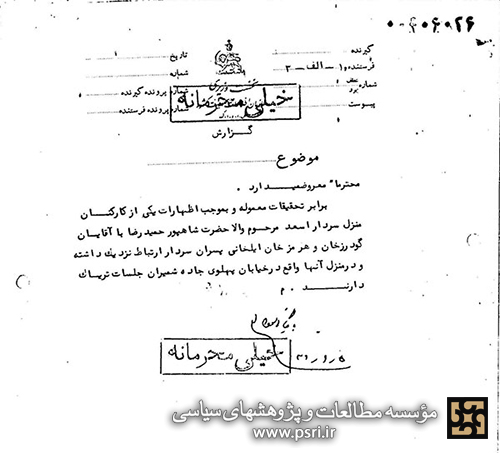 ۰۰۶۰۶۰۲۶
گیرنده
تاریخ
فرستنده ۱۰ - الف - ۳
شماره
شماره
نخست وزیری
شماره پرونده گیرنده
پیوست
خیلی محرمانه
شماره پرونده فرستنده
گزارش
موضوع
محترماً معروضیدارد .
برابر تحقیقات معموله و بموجب اظهارات یکی از کارکنان
منزل سردار اسعد مرحوم والا حضرت شاهپور حمیدرضا با آقایان
گودرزخان و هرمز خان ایلخانی پسران سردار ارتباط نزدیک داشته
و در منزل آنها واقع در خیابان پهلوی جاده شمیران جلسات تریاک
دارنــد .
خیلی محرمانه
مؤسسه مطالعات و پژوهشهای سیاسی
www.psri.ir